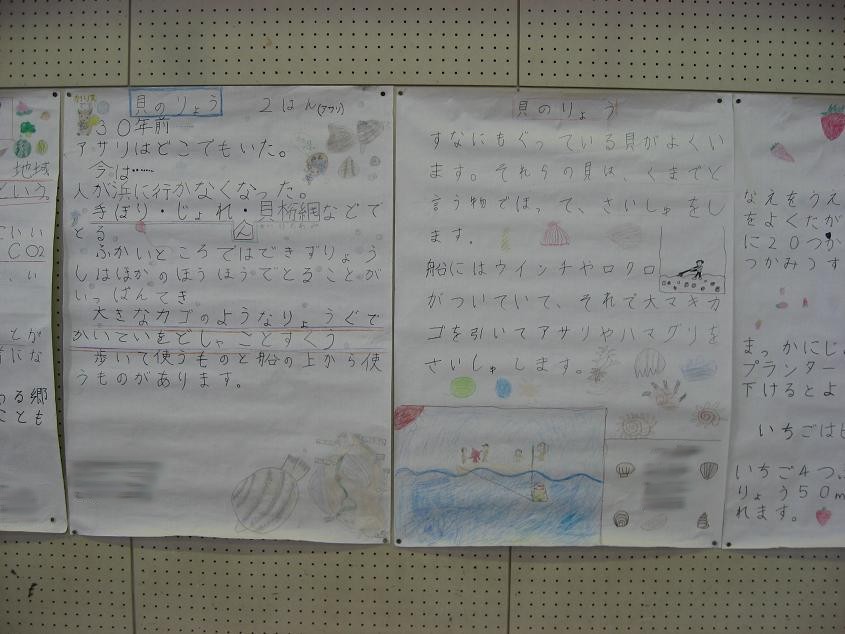 地域
という。
CO2
い
とが
な
る郷
とも
貝のりょう
2はん(アサリ)
30年前
アサリはどこでもいた。
今は……
人が浜に行かなくなった。
手ばり・じょれ・貝桁網などで
ん
とる
ふかいところではできずりょう
しはほかのほうほうでとることが
いっぱんてき
大きなカゴのようなりょうぐで
かいていをどしゃごとすくう
歩いて使うものと船の上から使
うものがあります。
貝のりょう
すなにもぐっている貝がよくい
ます。それらの貝は、くまでと
言う物でほって、さいしゅをし
ます。
船にはウインチやロクロ
がついていて、それで大マキカ
ゴを引いてアサリやハマグリを
さいしゅします。
なえをうえ
をよくたが
に20つか
つかみうす
まっかにじ
プランター
下けるとよ
いちごはビ
いちご4つ
りょう50m
れます。